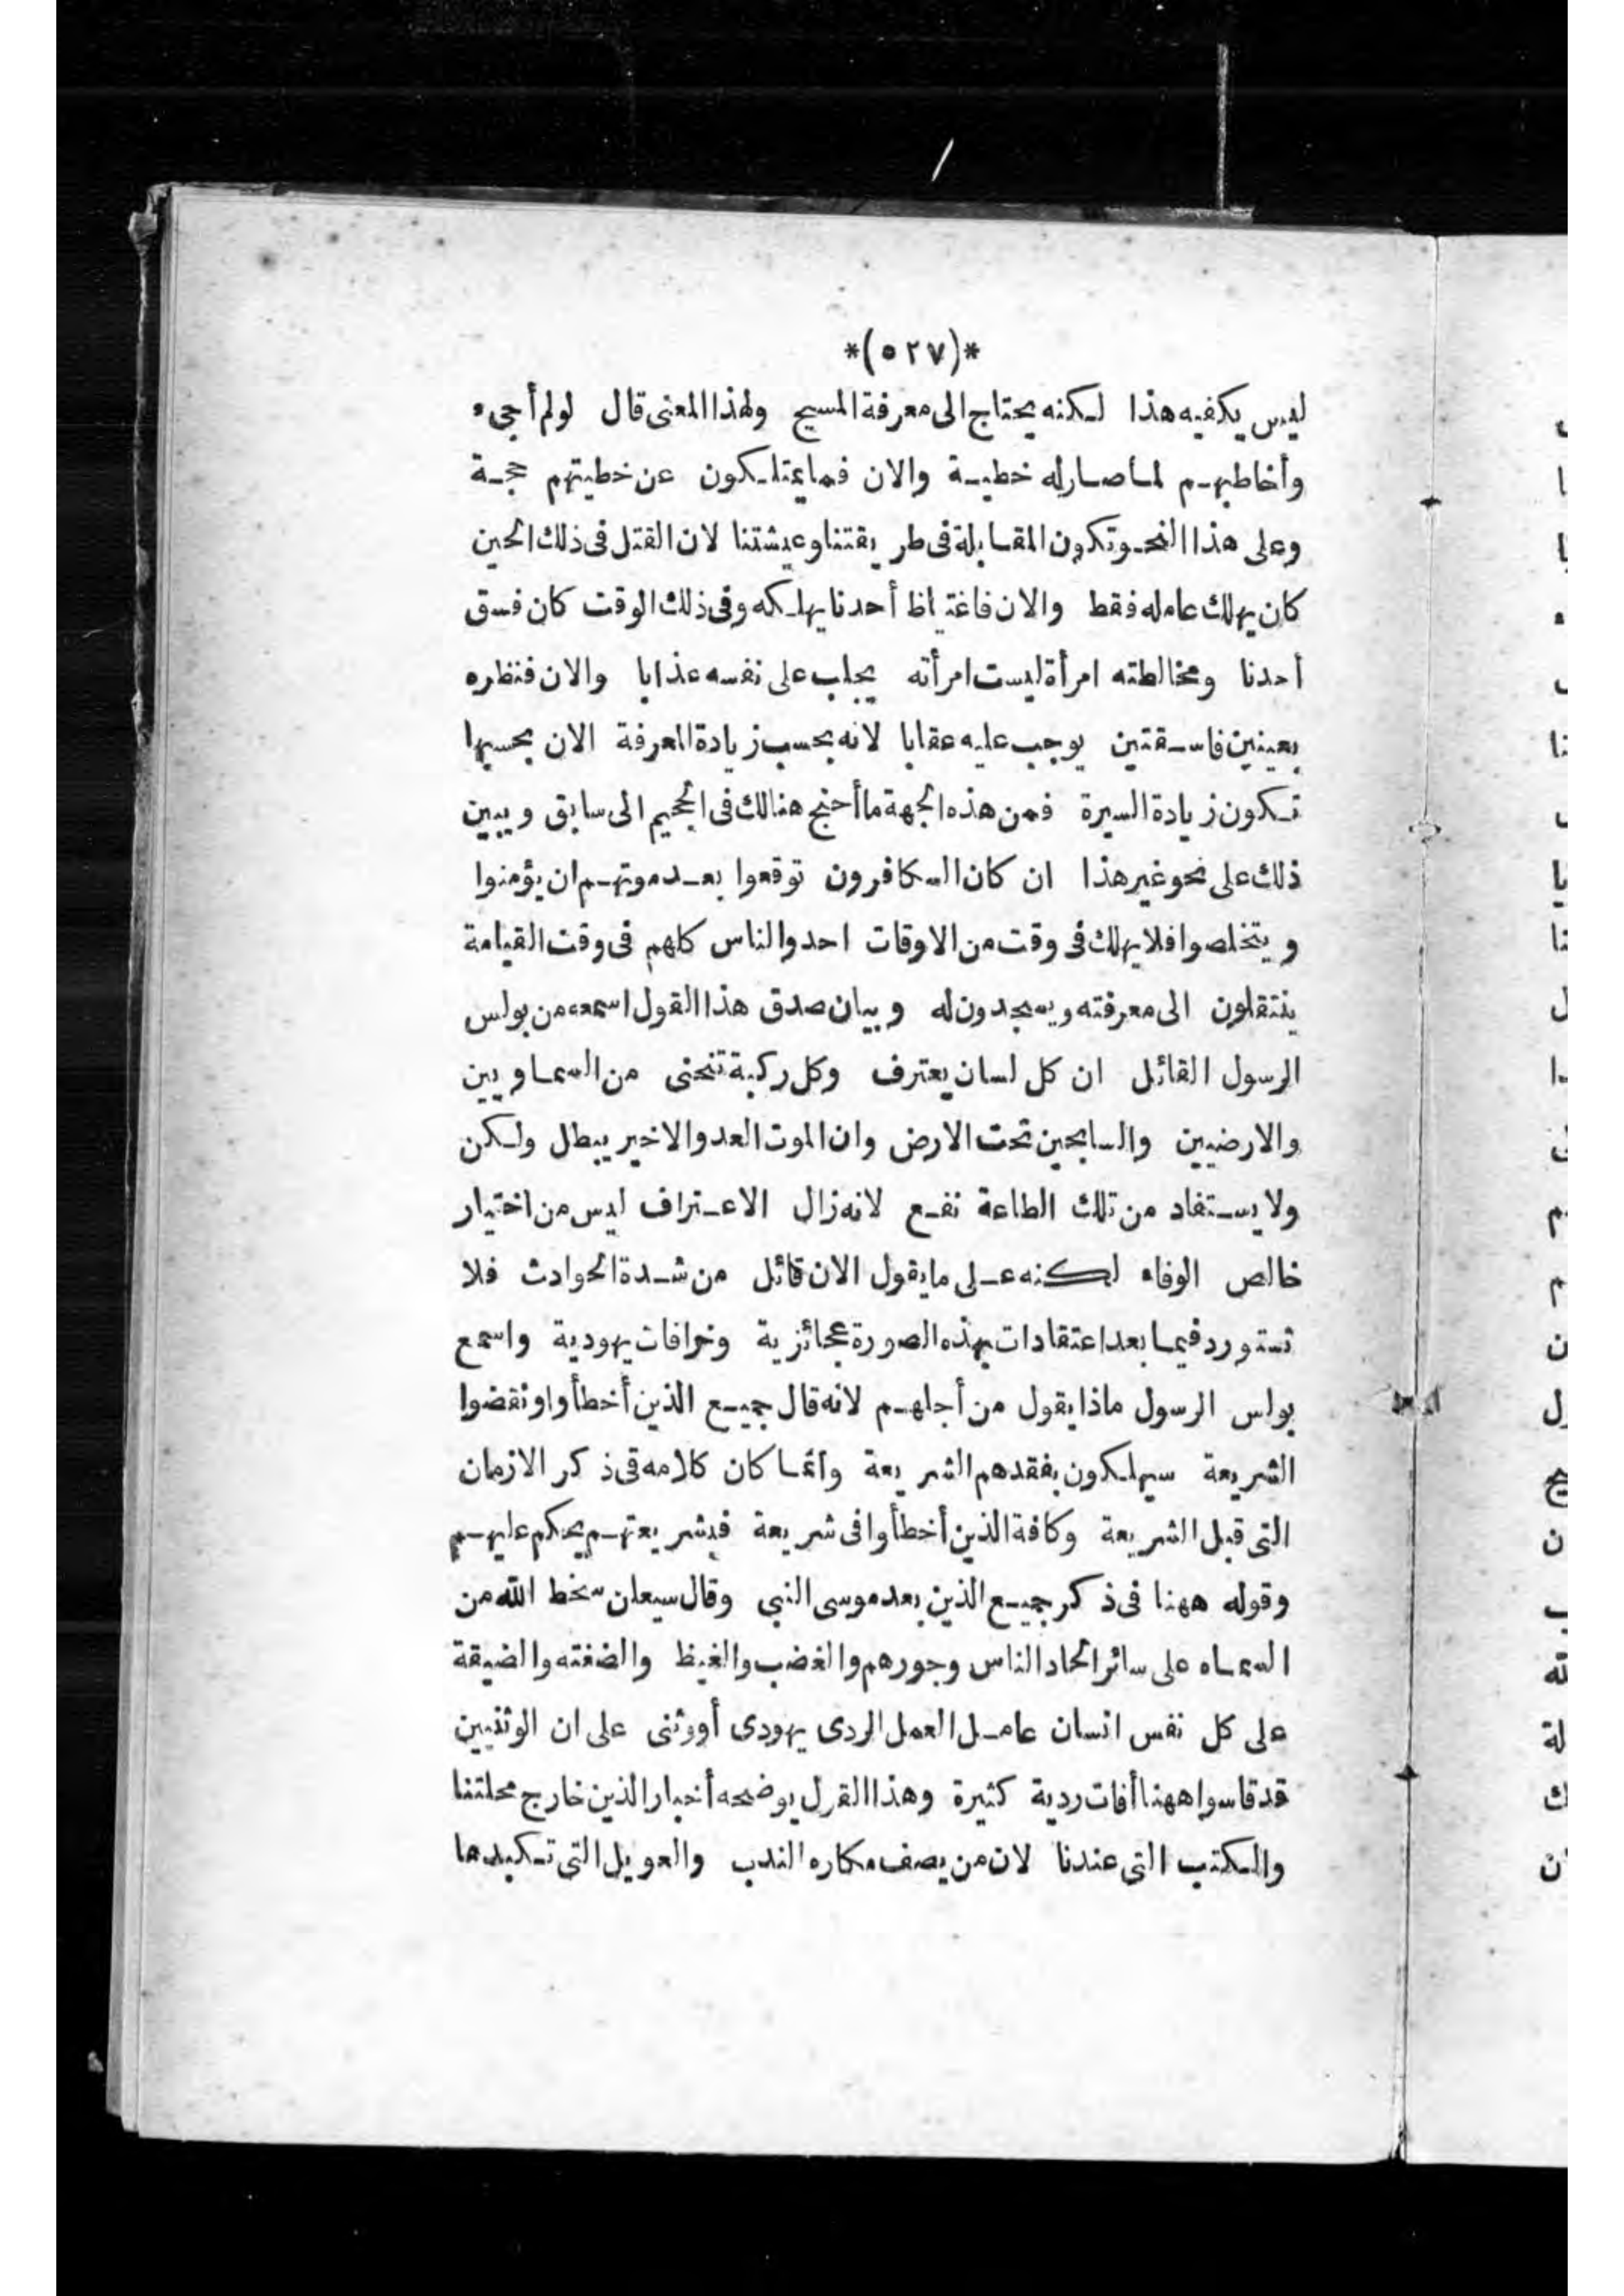 *(٥٢٧)*
ليس يكفيه هذا لكنه يحتاج الى معرفة المسيح ولهذا المعنى قال لولم أجىء
وأخاطبهم لما صار له خطية والان فما يمتلكون عن خطيتهم حجة
وعلى هذا النحو تكون المقابلة فى طريقتنا وعيشتنا لان القتل فى ذلك الحين
كان يهلك عامله فقط والان فاغتياظ أحدنا يهلكه وفى ذلك الوقت كان فسق
أحدنا ومخالطته امرأة ليست امرأته يجلب على نفسه عذابا والان فنظره
بعينين فاسقتين يوجب عليه عقابا لانه بحسب زيادة المعرفة الان بحسبها
تكون زيادة السيرة فمن هذه الجهة ما أحنج هنالك فى الجحيم الى سابق ويبين
ذلك على نحو غير هذا ان كان الكافرون توقعوا بعد موتهم ان يؤمنوا
ويتخلصوا فلا يهلك فى وقت من الاوقات احد والناس كلهم فى وقت القيامة
ينتقلون الى معرفته ويسجدون له وبيان صدق هذا القول اسمعه من بولس
الرسول القائل ان كل لسان يعترف وكل ركبة تنحنى من السماويين
والارضيين والسابحين تحت الارض وان الموت العدو الاخير يبطل ولكن
ولا يستفاد من تلك الطاعة نفع لانه زال الاعتراف ليس من اختيار
خالص الوفاء لكنه على ما يقول الان قائل من شدة الحوادث فلا
تستورد فيما بعد اعتقادات بهذه الصورة عجائزية وخرافات يهودية واسمع
بولس الرسول ماذا يقول من أجلهم لانه قال جميع الذين أخطأوا ونقضوا
الشريعة سيهلكون بفقدهم الشريعة وانما كان كلامه فى ذكر الازمان
التى قبل الشريعة وكافة الذين أخطأوا فى شريعة فبشريعتهم يحكم عليهم
وقوله ههنا فى ذكر جميع الذين بعد موسى النبي وقال سيعلن سخط الله من
السماء على سائر الحاد الناس وجورهم والغضب والغيظ والضغته والضيقة
على كل نفس انسان عامل العمل الردى يهودى أو وثنى على ان الوثنيين
قد قاسوا ههنا أفات ردية كثيرة وهذا القول يوضحه أخبار الذين خارج محلتنا
والكتب التى عندنا لان من يصف مكاره الندب والعويل التى تكبدها